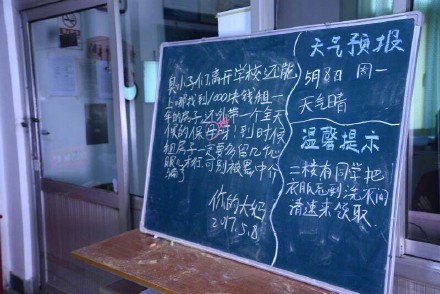 臭小子们,离开学校还能
上哪找到1000块钱租一
年的房子,还外带一个全天
候的保母呀!到时候
租房子一定要多留几个
眼儿才行,可别被黑中介
骗了
你的大妈
2017.5.8
天气预报
5月8日 周一
天气晴
温馨提示
二楼有同学把
衣服充到洗衣间
请速来领取.